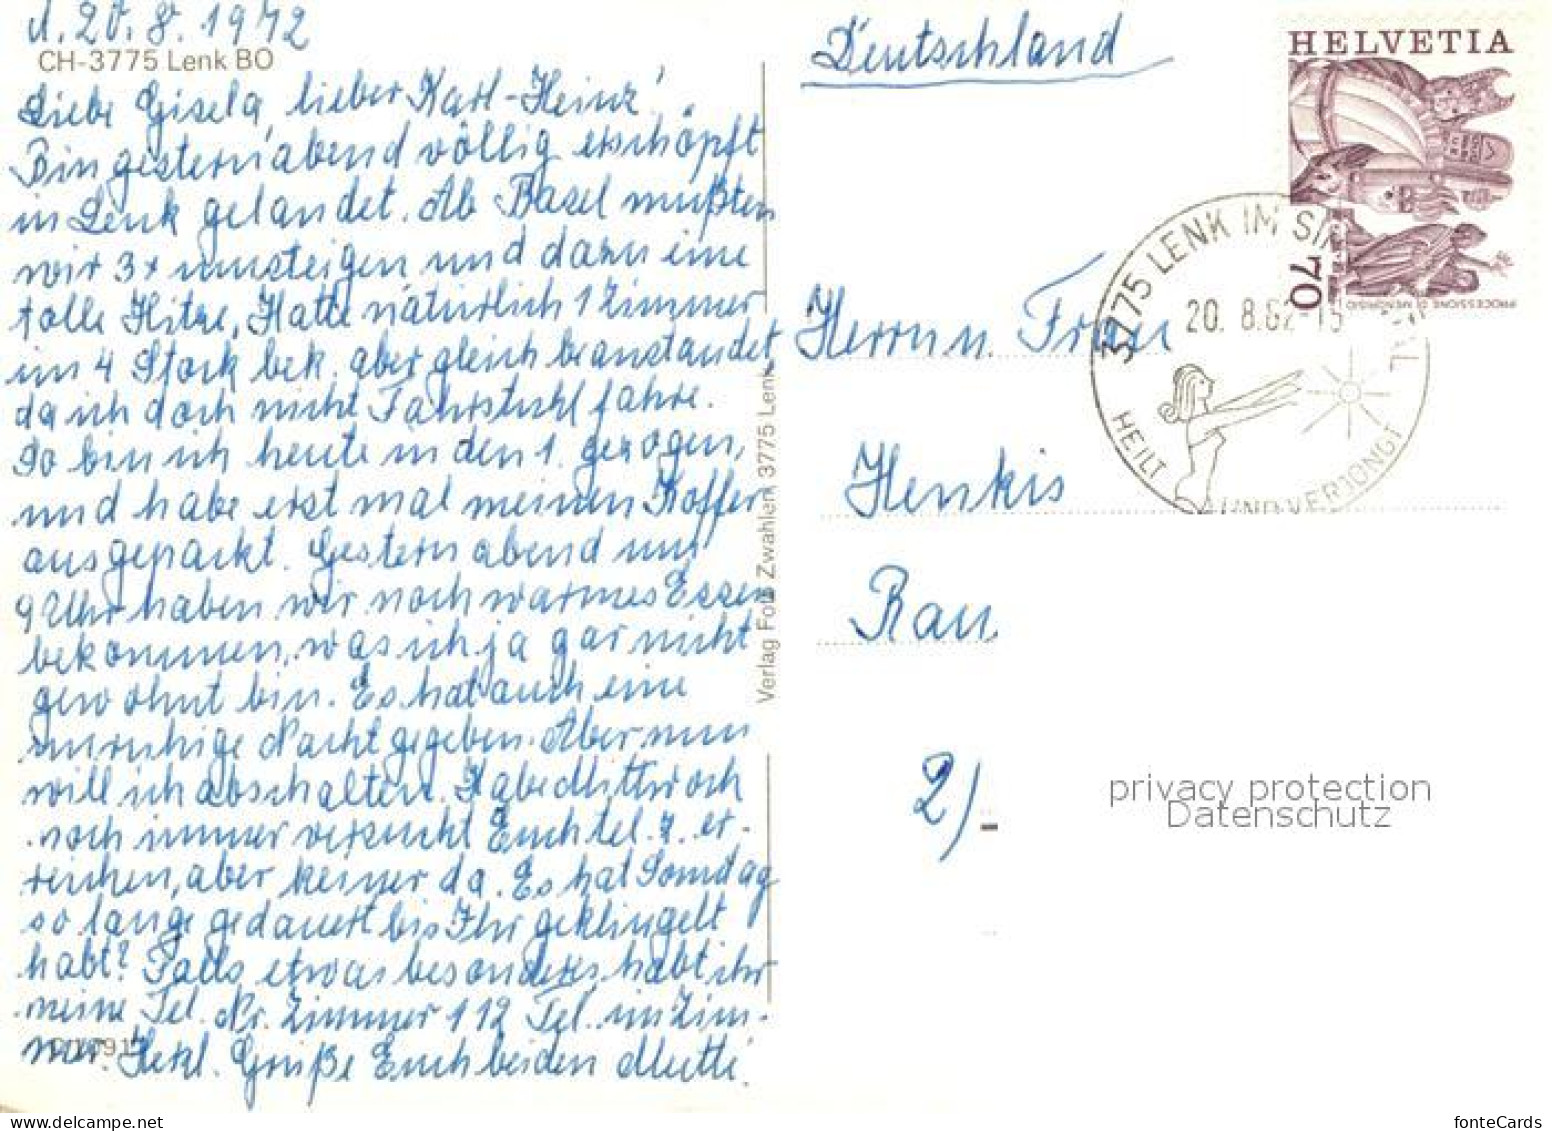 d. 20. 8. 1972
CH-3775 Lenk BO
Liebe Gisela, lieber Karl-Heinz!
Bin gestern abend völlig erschöpft
in Lenk gelandet. Ab Basel mußten
wir 3x umsteigen und dazu eine
tolle Hitze, Hatte natürlich 1 Zimmer
im 4 Stock bek. aber gleich beanstandet,
da ich doch nicht Fahrstuhl fahre.
So bin ich heute in den 1. gezogen,
und habe erst mal meinen Koffer
ausgepackt. Gestern abend um
9 Uhr haben wir noch warmes Essen
bekommen, was ich ja gar nicht
gewöhnt bin. Es hat auch eine
unruhige Nacht gegeben. Aber nun
will ich abschalten. Habe Mittwoch
noch immer versucht Euch tel. z. er-
reichen, aber keiner da. Es hat Sonndag
so lange gedauert bis Ihr geklingelt
habt? Falls etwas besonderes, habt ihr
meine Tel. Nr. Zimmer 112 Tel. im Zim-
mer. Herzl. Grüße Euch beiden Mutti.
Verlag Foto Zwahlen, 3775 Lenk
Deutschland
HELVETIA
70
PROCESSIONE DI MENDRISIO
3775 LENK IM SIMMENTAL
20. 8.82-15
HEILT UND VERJÜNGT
Herrn u. Frau
Henkis
Rau
2/-
privacy protection
Datenschutz
fonteCards